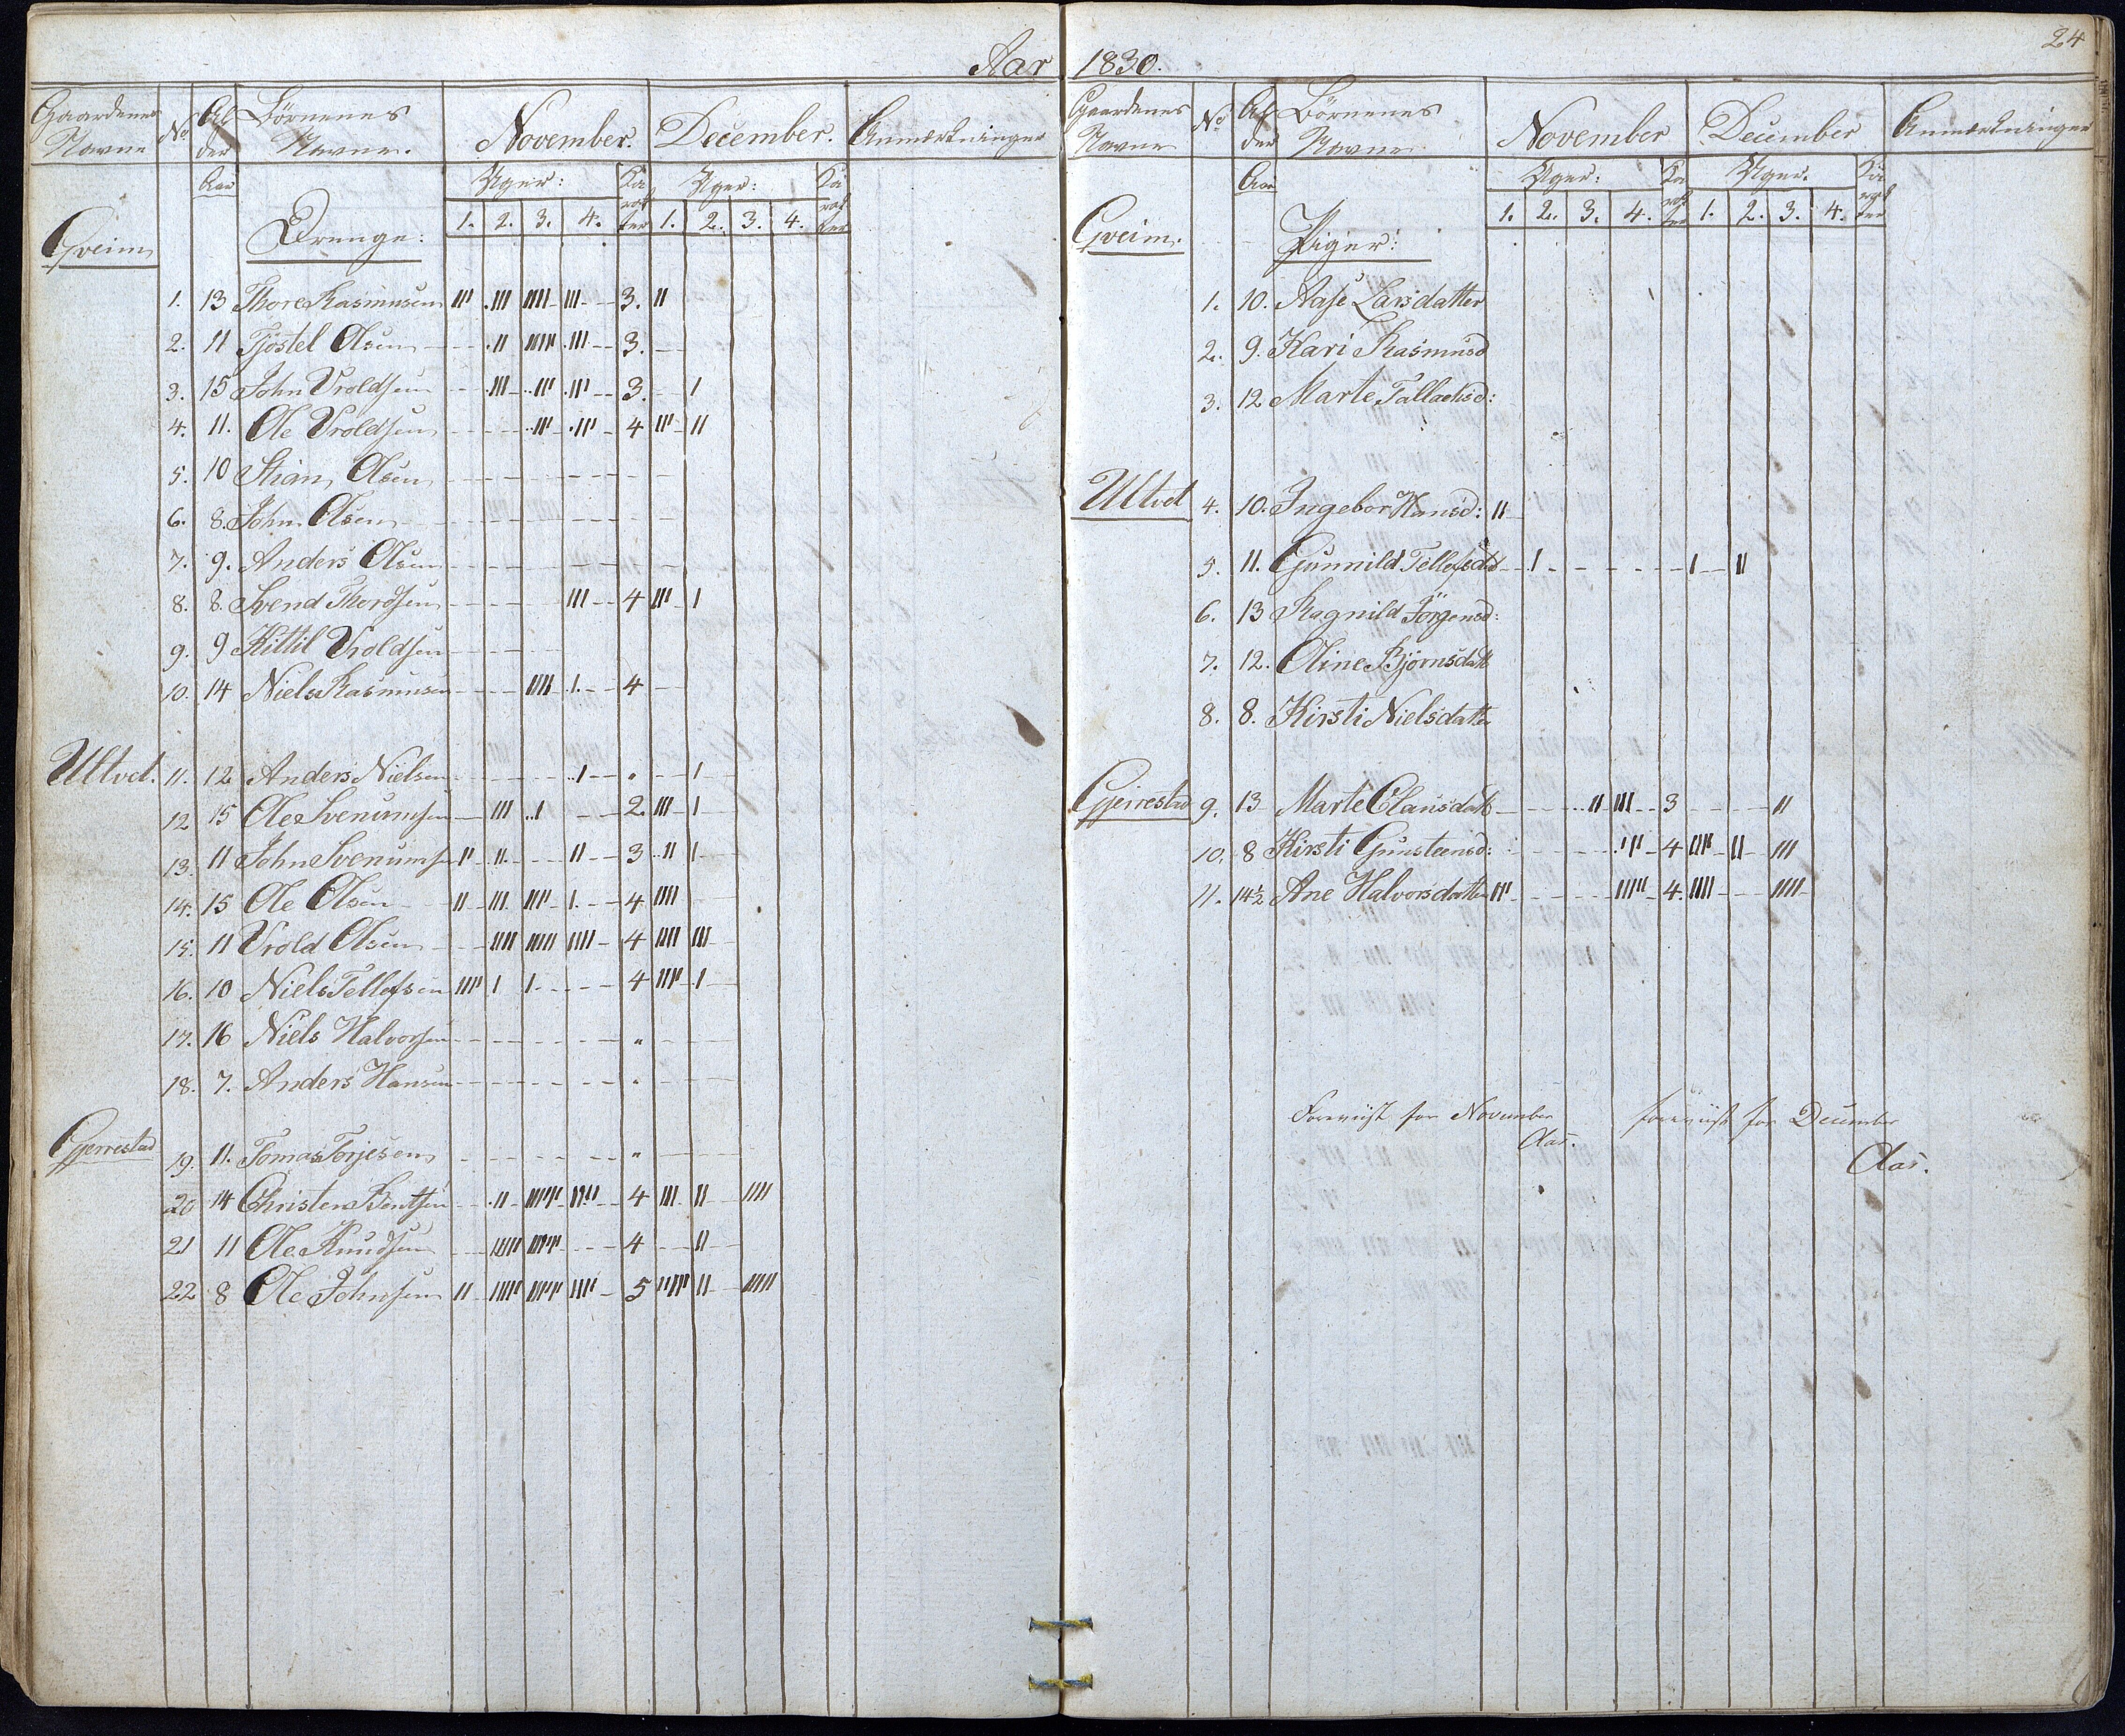 Aar 1830.
24
Gaardenes Navne No Al der Aar Börnenes Navne. November. December. Anmærkninger
Uger: Ka rak ter Uger: Ka rak ter
1. 2. 3. 4. 1. 2. 3. 4.
Gveim Drenge:
1. 13 Thore Rasmusen III .III IIII III 3. II
2. 11 Tjöstel Olsen .II IIII .III 3.
3. 15 John Vroldsen .III ..III .III 3. I
4. 11. Ole Vroldsen ..III .III 4 III II
5. 10 Stian Olsen
6. 8. John Olsen
7. 9. Anders Olsen
8. 8. Svend Thordsen III 4 III I
9. 9 Kittil Vroldsen
10. 14 Niels Rasmusen IIII I. 4
Ultvet. 11. 12 Anders Nielsen ..I " I
12 15 Ole Svenumsen III ..I 2. III I
13. 11 John Svenums II II. II 3 ..II I
14. 15 Ole Olsen II III IIII I. 4 IIII
15. 11 Vrold Olsen IIII IIIII IIII 4 IIII III
16. 10 Niels Tellefsen IIII I I. 4 IIII I
17. 16 Niels Halvorsen "
18. 7. Anders Hansen "
Gjerrestad 19. 11. Tomas Torjesen "
20 14 Christen Bentsen .II IIIII IIII 4 III II IIII
21 11 Ole Knudsen IIIII IIIII 4 II
22 8 Ole Johnsen II IIIII IIIII IIII 5 IIIII II IIIII
Gaardenes Navne No Al der Aar Börnenes Navne. November December Anmærkninger
Uger: Ka rak ter Uger. Ka rak ter
1. 2. 3. 4. 1. 2. 3. 4.
Gveim. Piger:
1. 10. Aase Larsdatter
2. 9. Kari Rasmusd
3. 12 Marte Tallachsd:
Ultvet 4. 10. Ingebor Hansd: II
5. 11. Gunnild Tellefsdt .I I II
6. 13 Ragnild Jörgensd:
7. 12. Oline Björnsdatt
8. 8. Kirsti Nielsdatter
Gjerrestad 9. 13 Marte Clausdatt ..II III 3 II
10. 8 Kirsti Gunsteensd: .III 4 IIII II III
11. 14½ Ane Halvorsdatter III IIIII 4. IIII IIII
Foreviist for November foreviist for December
Aas.
Aas.